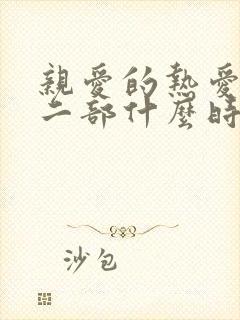 親愛的熱愛
二部什麼時
沙包